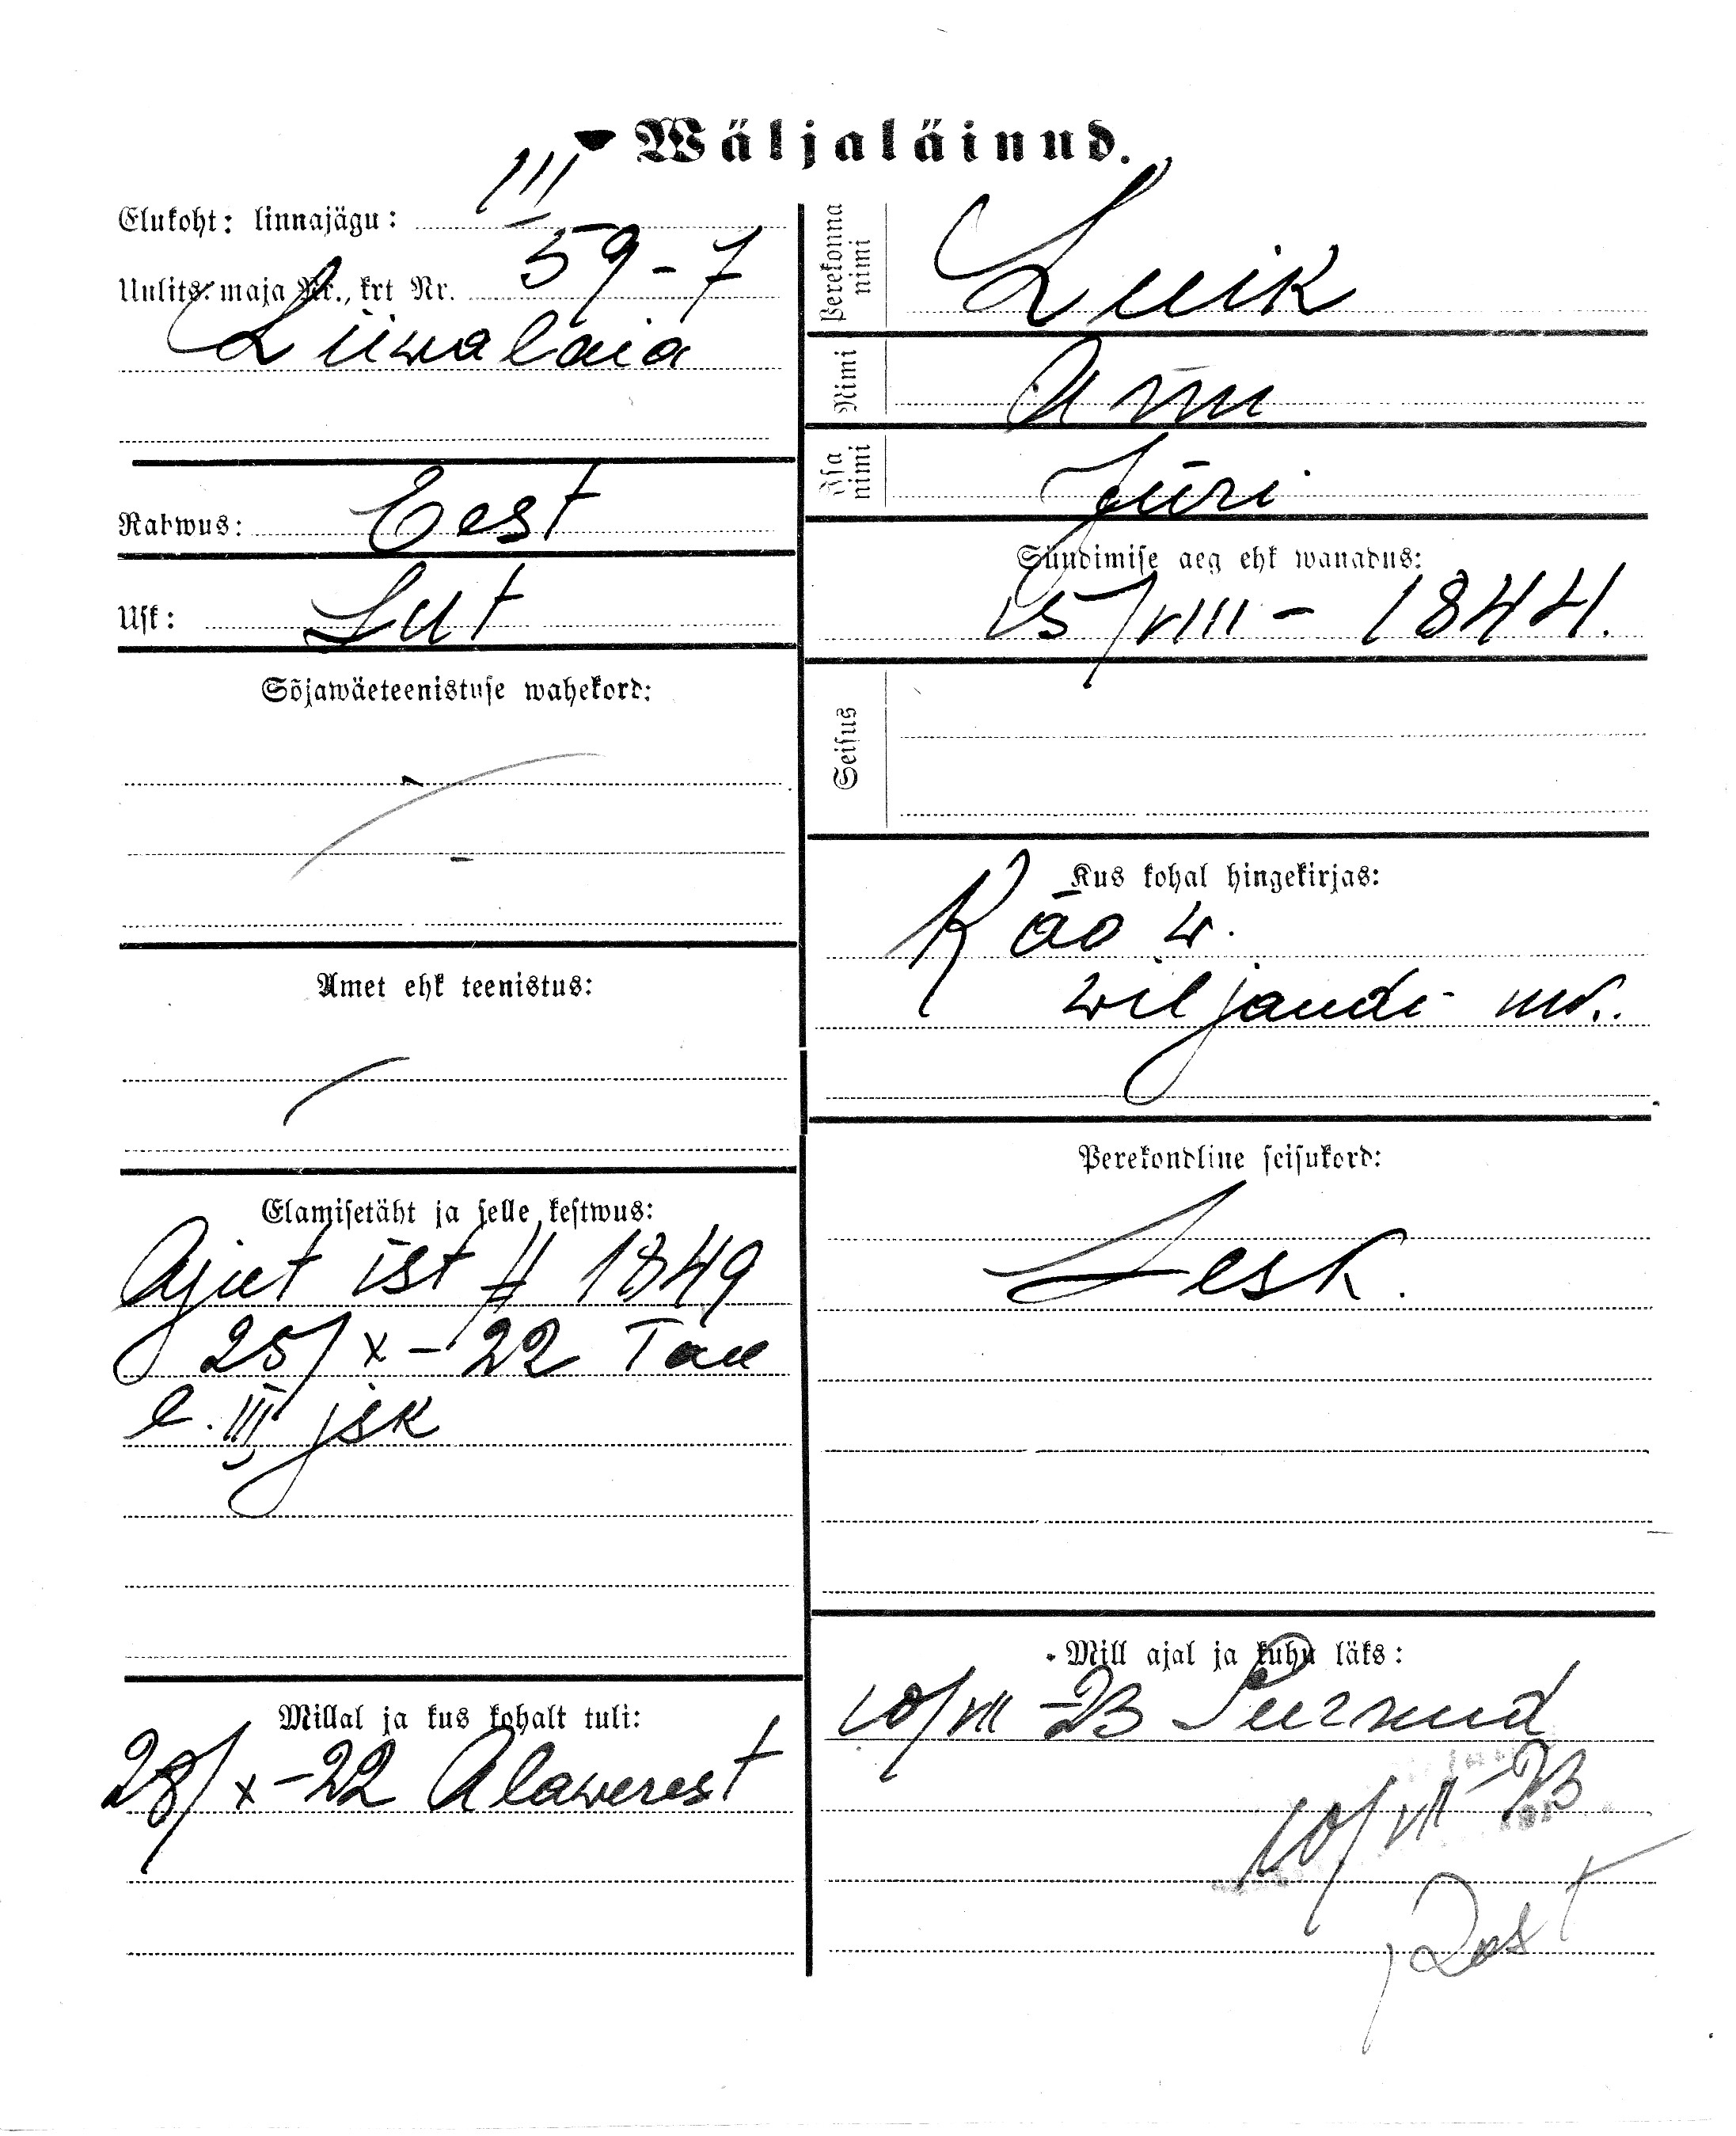 Wäljaläinud.
Elukoht: linnajägu: III
Uulits: maja Nr., krt Nr. 59-7
Liiwalaia
Rahwus: Eest
Usk: Lut
Sõjawäeteenistuse wahekord:
Amet ehk teenistus:
Elamisetäht ja selle kestwus:
Ajut ist # 1849
25/X-22 Tall
l. III jsk
Millal ja kus kohalt tuli:
28/X-22 Alawerest
Perekonna nimi Luik
Nimi Ann
Isa nimi Jüri
Sündimise aeg ehk wanadus:
15/VIII - 1844.
Seisus
Kus kohal hingekirjas:
Kõo w.
Wiljandi mk.
Perekondline seisukord:
Lesk.
Mill ajal ja kuhu läks:
10/VII-23 Surnud
10/VII-23